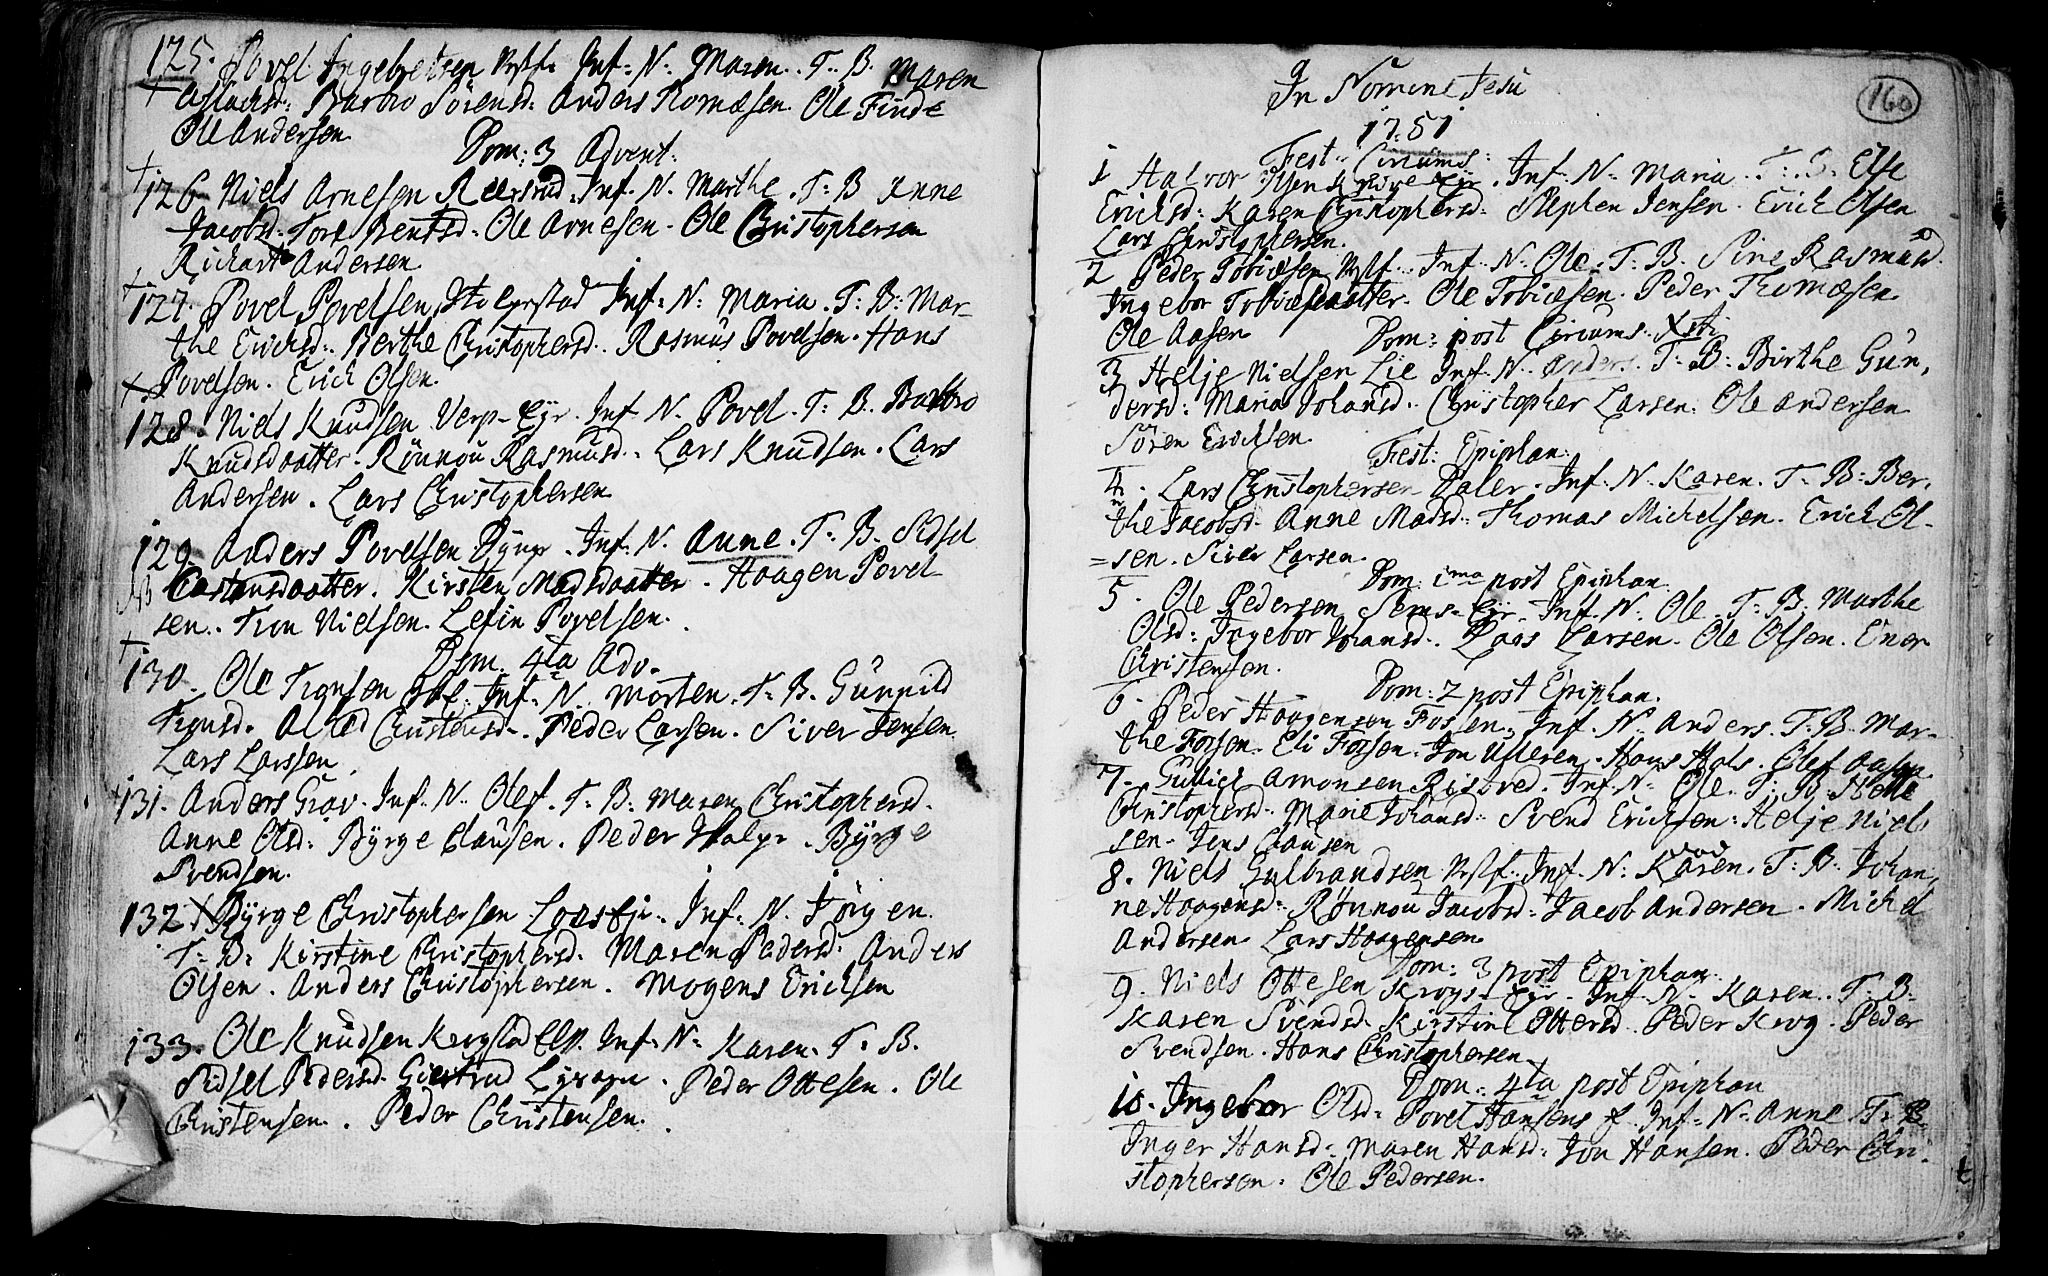 125. Povel Ingebretsen Inf: N. Maren. T. B. Maren
Aslachsd: Barbro Sörensd: Anders Thomæsen. Ole Finde
Ole Andersen
Dom: 3 Advent.
126 Niels Arnesen Inf. N. Marthe. T: B Anne
Jacobsd. Tore Bentsd. Ole Arnesen. Ole Christophersen
Richart Andersen
127. Povel Povelsen Inf: N: Maria. T: B: Mar-
the Erichsd: Berthe Christophersd. Rasmus Povelsen. Hans
Povelsen. Erich Olsen.
128. Niels Knudsen Verp-Eÿr. Inf. N. Povel. T: B. Barbro
Knudsdaatter. Rönnou Rasmusd. Lars Knudsen. Lars
Andersen. Lars Christophersen
129. Anders Povelsen Inf. N. Anne. T: B. Sidsel
Carstensdaatter. Kirsten Madsdaatter. Haagen Povel
sen. Tron Nielsen. Povelsen.
Dom. 4ta Adv.
130. Ole Tronsen Inf. N. Morten. T: B. Gunnild
Tronsd. Christensd. Peder Larsen. Siver Jensen
Lars Larssen
131. Anders Grav. Inf. N. Olef. T: B: Maren Christophersd.
Anne Olsd: Bÿrge Clausen. Peder. Bÿrge
Svendsen.
132. Bÿrge Christophersen Inf: N. Jörgen.
T: B: Kirstine Christophersd. Maren Pedersd: Anders
Olsen. Anders Christophersen. Mogens Erichsen
133. Ole Knudsen Inf: N: Karen. T: B.
Sidsel Pedersd. Giertrud. Peder Ottesen. Ole
Christensen. Peder Christensen.
In Nomine Jesu
160
1751
Fest: Circums:
1 Halvor Olsen Inf: N: Maria. T: B. Else
Erichsd: Karen Christophersd: Stephen Jensen. Erich Olsen
Lars Christophersen.
2 Peder Tobiæsen Inf. N. Ole. T: B. Sine Rasmusd
Ingebor Tobiæsdaatter. Ole Tobiæsen. Peder Thomæsen
Ole Aasen
Dom: post Circums. Xsti
3 Helje Nielsen Lie Inf. N. Anders. T: B: Birthe Gun,
dersd: Maria Johansd. Christopher Larsen. Ole Andersen
Sören Erichsen.
Fest: Epiphan:
4. Lars Christophersen Daler. Inf. N. Karen. T: B: Ber,
the Jacobsd. Anne Madsd: Thomas Michelsen. Erich Ol-
=sen. Siver Larsen.
Dom: 1ma post Epiphan
5. Ole Pedersen Sems-Eÿr. Inf. N. Ole. T: B. Marthe
Olsd: Ingebor Johansd. Lars Larsen. Ole Olsen. Ener
Christensen.
Dom: 2 post Epiphan.
6. Peder Haagensen Fossen. Inf. N. Anders. T: B. Mar-
the Fossen. Eli Fossen. Jon Ulleren. Hans Hals. Olef Aasen
7. Gullich Amonsen Inf: N: Ole. T: B. Helle
Christophersd: Marie Johansd: Svend Erichsen. Helje Niel,
sen. Jens Clausen
8. Niels Gulbrandsen Inf. N. Karen. T: B. Johan,
ne Haagensd: Rönnou Jacobsd: Jacob Andersen. Michel
Andersen. Lars Haagensen
Dom: 3 post Epiphan.
9. Niels Ottesen Krogs-Eÿr. Inf. N. Karen. T: B:
Karen Svendsd. Kirstine Ottersd. Peder Krog. Peder
Svendsen. Hans Christophersen
Dom: 4ta post Epiphan
10. Ingebor Olsd: Povel Hansens Inf. N. Anne T: B.
Inger Hansd: Maren Hansd: Jon Hansen. Peder Chri-
stophersen. Ole Pedersen.